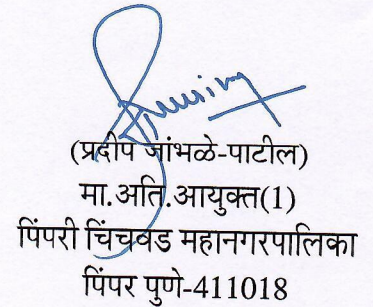 (प्रदीप जांभळे-पाटील)
मा.अति.आयुक्त(1)
पिंपरी चिंचवड महानगरपालिका
पिंपर पुणे-411018